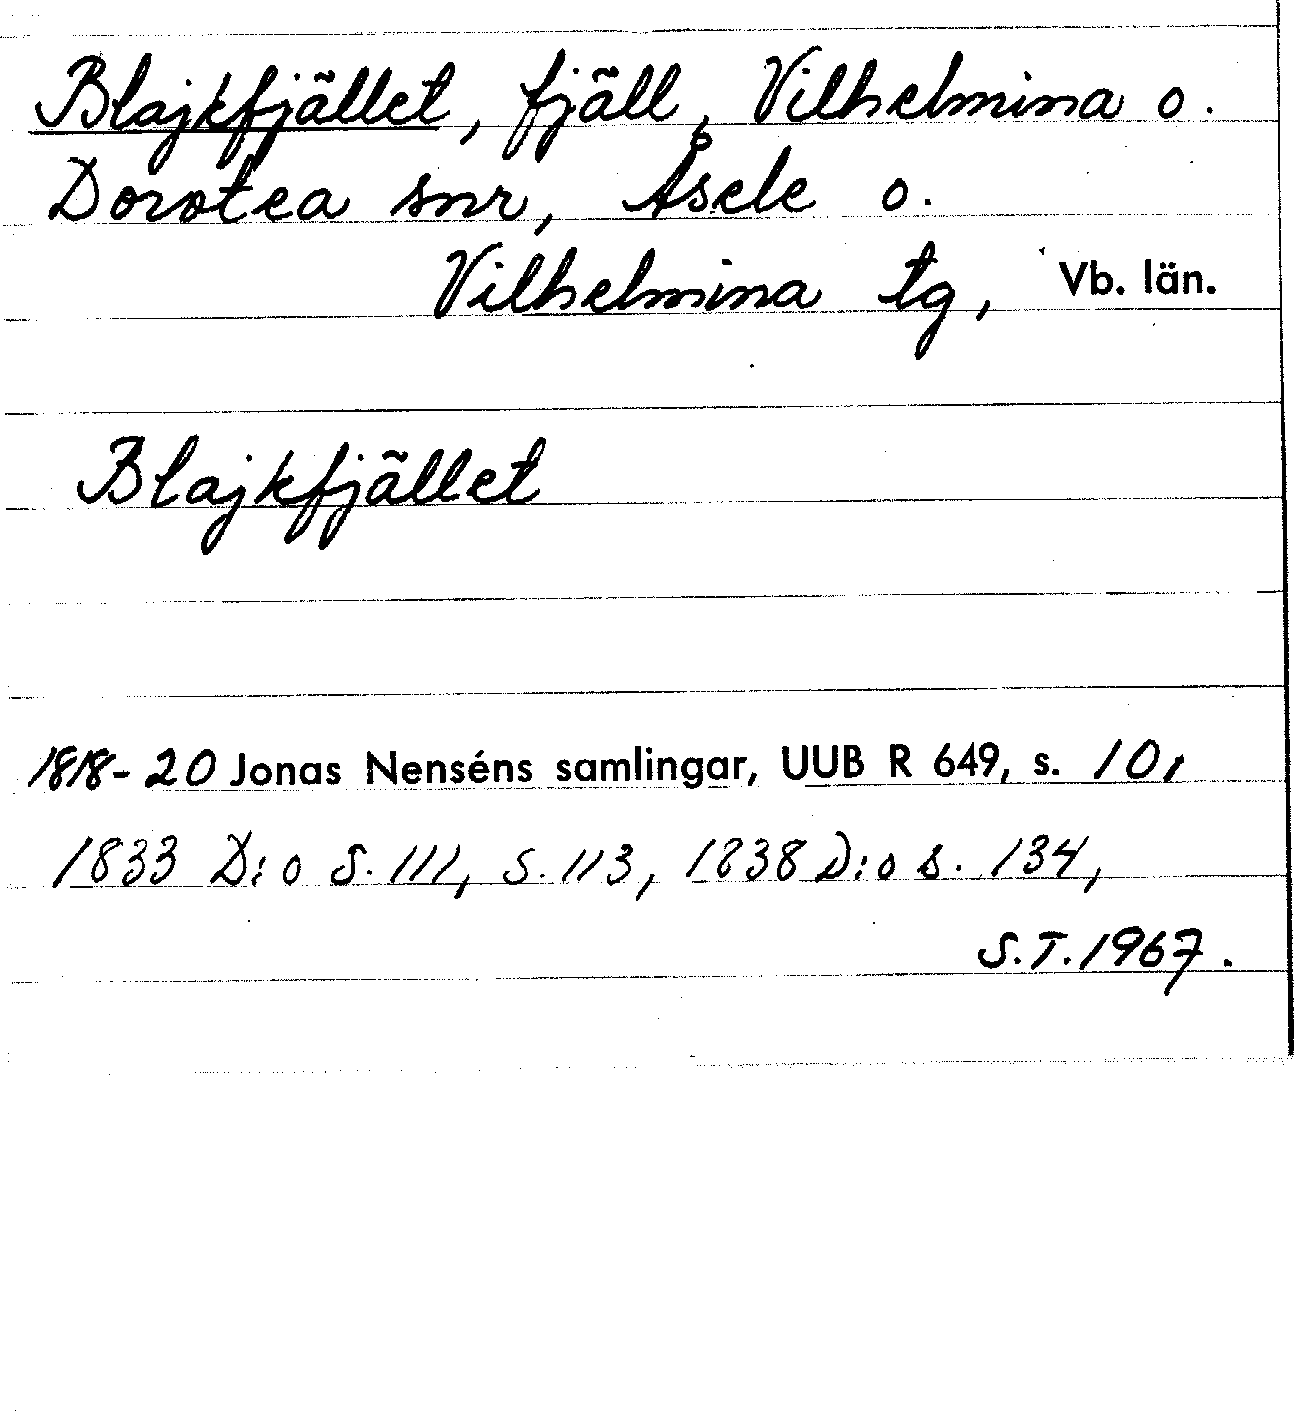 Blajkfjället, fjäll, Vilhelmina o.
Dorotea snr, Åsele o.
Vilhelmina tg, Vb. län.
Blajkfjället
1818-20 Jonas Nenséns samlingar, UUB R 649, s. 10,
1833 D:o S. 111, S. 113, 1838 D:o s. 134,
S.T. 1967.